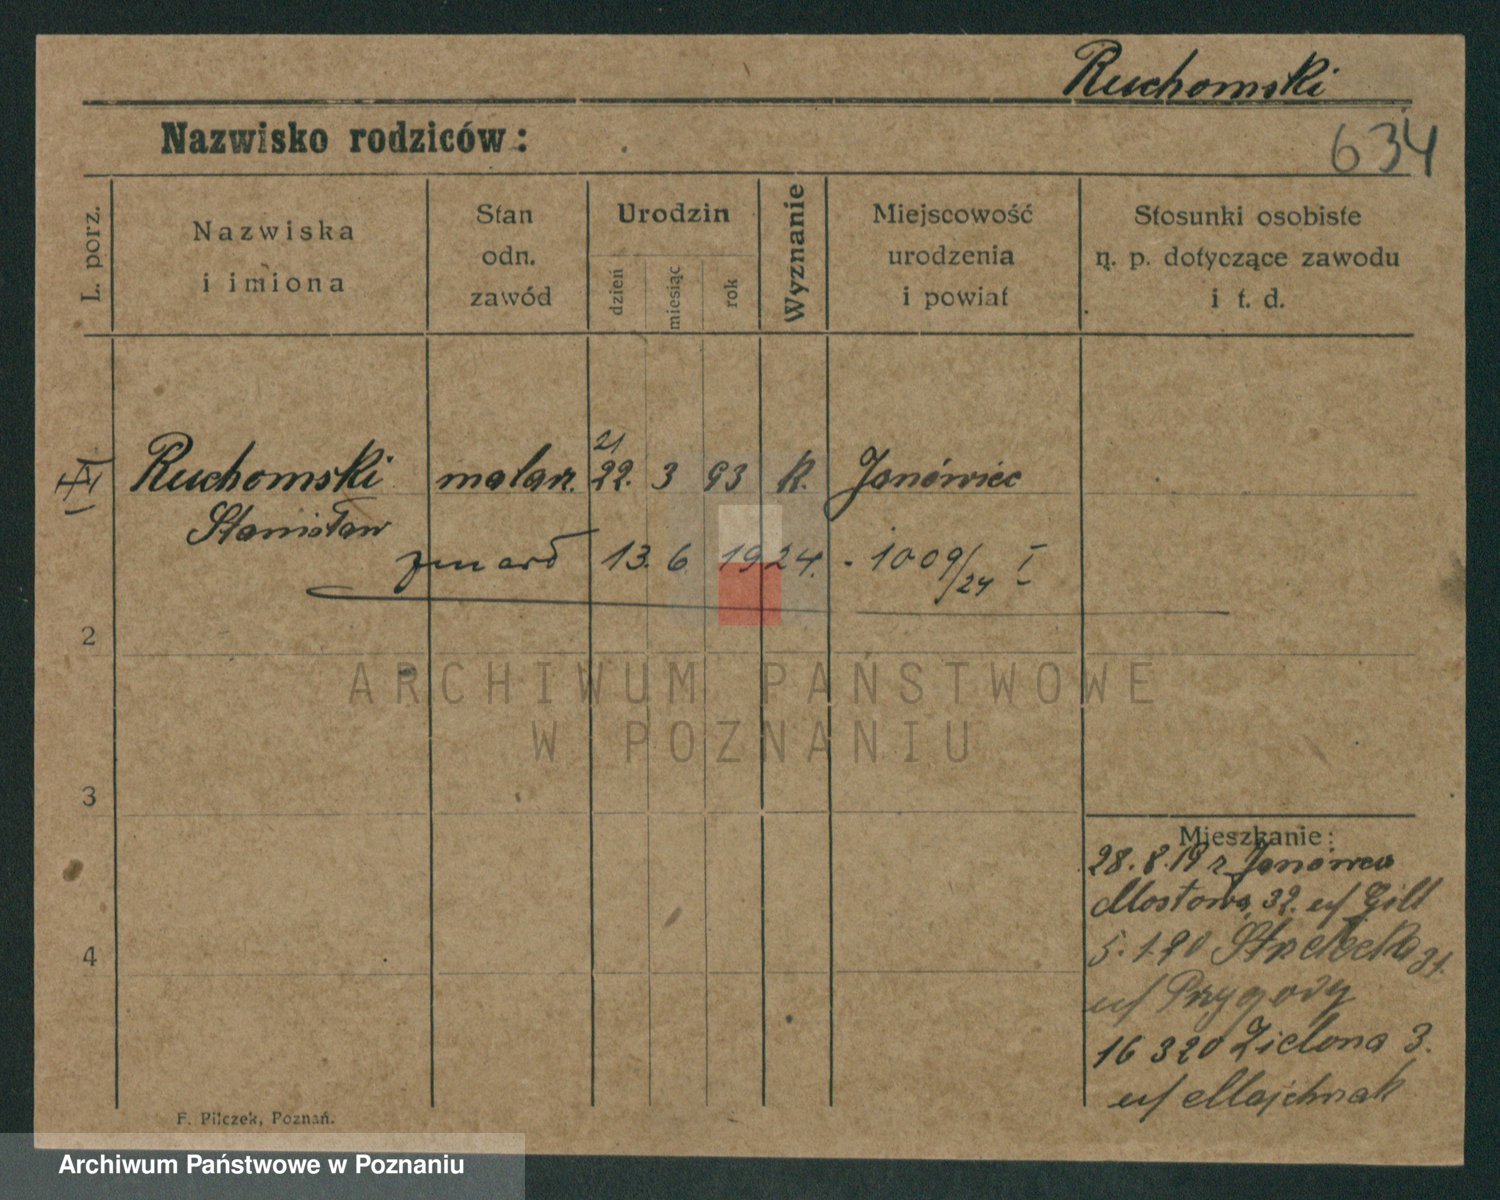 Ruchomski
Nazwisko rodziców:
634
L. porz.
Nazwiska
i imiona
Stan
odn.
zawód
Urodzin
dzień
miesiąc
rok
Wyznanie
Miejscowość
urodzenia
i powiat
Stosunki osobiste
n. p. dotyczące zawodu
i t. d.
21
Ruchomski malarz. 22. 3 93 K. Janówiec
Stanisław
zmarł 13. 6. 1924. - 1009/24 I
2
ARCHIWUM PAŃSTWOWE
W POZNANIU
3
Mieszkanie:
28.8.19 z Janówca
Mostowa 32. u/ Gill
5.1.20 Strzelecka 31.
u/ Przygody
16 3 20 Zielona 3.
u/ Majchrzak
4
F. Pilczek, Poznań.
Archiwum Państwowe w Poznaniu